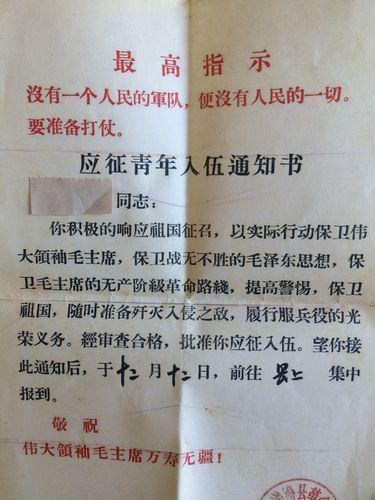 最高指示
沒有一个人民的軍队，便沒有人民的一切。
要准备打仗。
应征青年入伍通知书
同志：
你积极的响应祖国征召，以实际行动保卫伟
大領袖毛主席，保卫战无不胜的毛泽东思想，保
卫毛主席的无产阶級革命路綫，提高警惕，保卫
祖国，随时准备歼灭入侵之敌，履行服兵役的光
荣义务。經审查合格，批准你应征入伍。望你接
此通知后，于十二月十二日，前往县上集中
报到。
敬祝
伟大領袖毛主席万寿无疆！